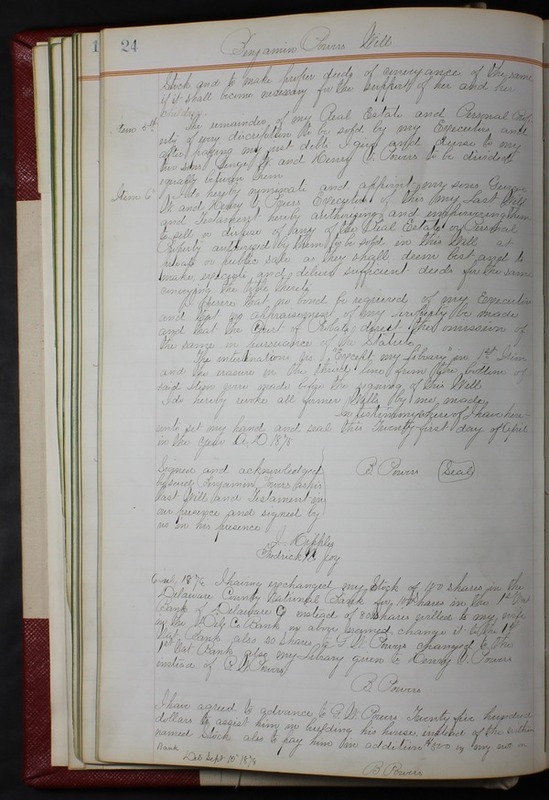 24
Benjamin Powers Will
Stock and to make proper deeds of conveyance of the same
if it shall become necessary for the support of her and her
children
Item 5th The remainder of my Real Estate and Personal Prop
erty of any discription to be sold by my Executors and
after paying my just debts I give and devise to my
two sons George W and Henry C. Powers to be divided
equally between them
Item 6" I do hereby nominate and appoint my sons George
W and Henry C Powers Executors of this my Last Will
and Testament hereby authorizing and empowering them
to sell or dispose of any of the Real Estate or Personal
Property authorized by them to be sold in this Will at
private or public sale as they shall deem best and to
make, execute, and deliver sufficient deeds for the same
conveying the title thereto
I desire that no bond be required of my Executors
and that no appraisement of my property be made
and that the Court of Probate direct the omission of
the same in pursuance of the Statute
The interlineation viz "Except my Library" in 1st Item
and the erasure in the third line from the bottom of
said Item were made before the signing of this Will
I do hereby revoke all former Wills by me made
In testimony whereof I have here
unto set my hand and seal this Twenty first day of April
in the year A.D 1875
Signed and acknowledged
by said Benjamin Powers as his
Last Will and Testament in
our presence and signed by
us in his presence
B Powers (Seal)
J. Hipple
Fredrick P Joy
1876 I having exchanged my Stock of 100 shares in the
Delaware County National Bank for 100 shares in the 1st Nat
Bank of Delaware O instead of 80 shares willed to my wife
in the Del. Co Bank as above named change it to the 1st
Nat. Bank also 20 shares to G W. Powers changed to the
1st Nat Bank also my Library given to Henry C. Powers
instead of G. W Powers
B Powers
I have agreed to advance to G. W. Powers Twenty five hundred
dollars to assist him in building his house instead of the within
named Stock also to pay him in addition $500 in my not in
Bank
Del Sept 10" 1876
B Powers